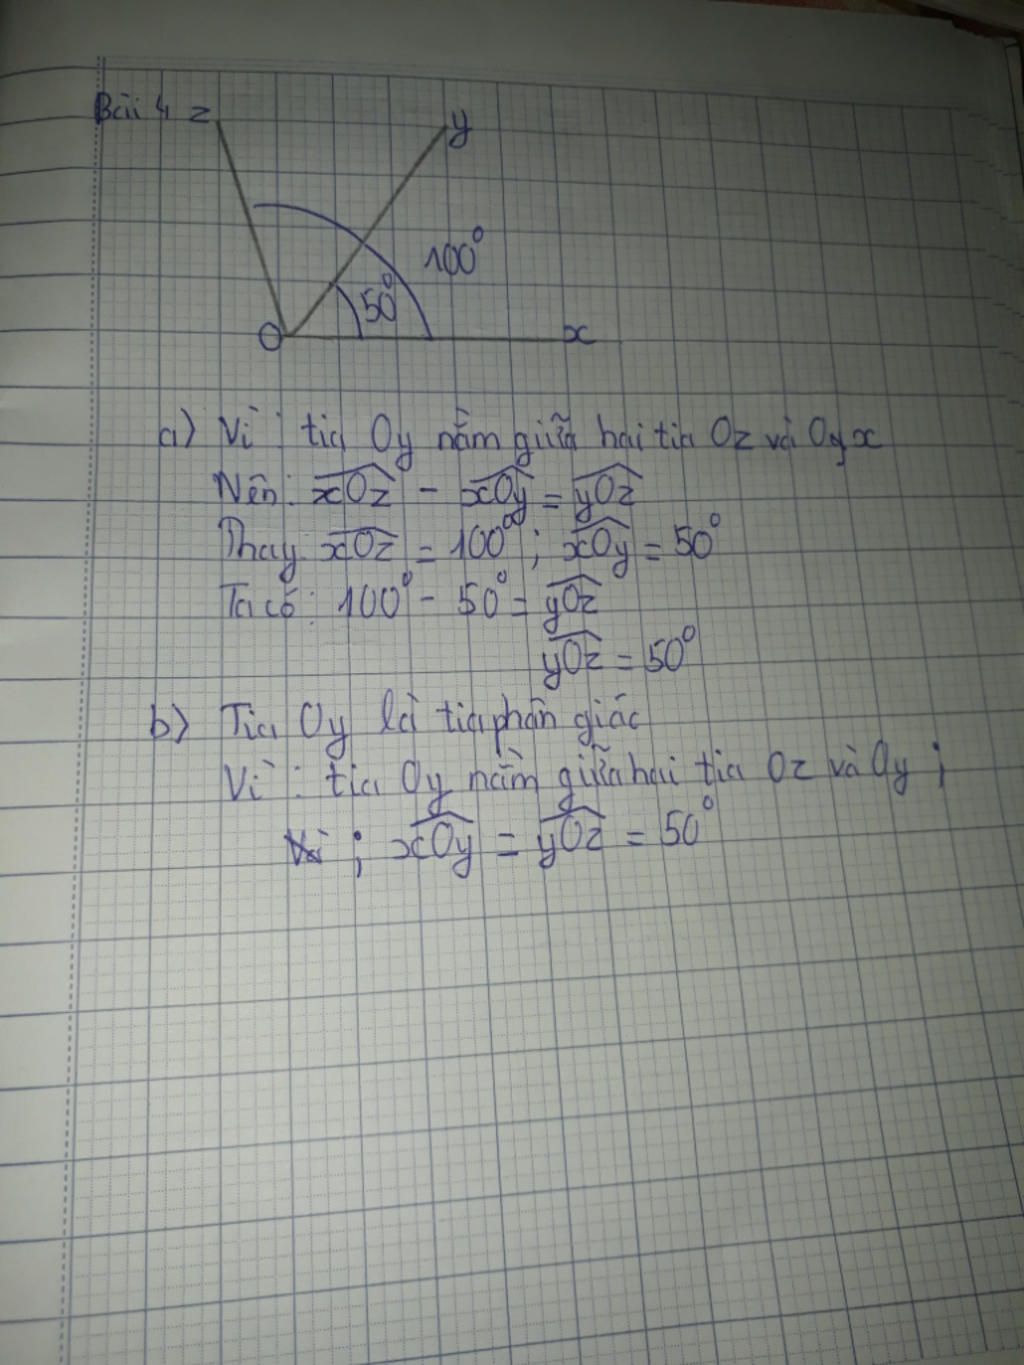 Bài 4 z
y
100°
50°
O
x
a) Vì : tia Oy nằm giữa hai tia Oz và Oy x
Nên: xOz - xOy = yOz
Thay: xOz = 100° ; xOy = 50°
Ta có: 100° - 50° = yOz
yOz = 50°
b) Tia Oy là tia phân giác
Vì : tia Oy nằm giữa hai tia Oz và Oy ;
; xOy = yOz = 50°